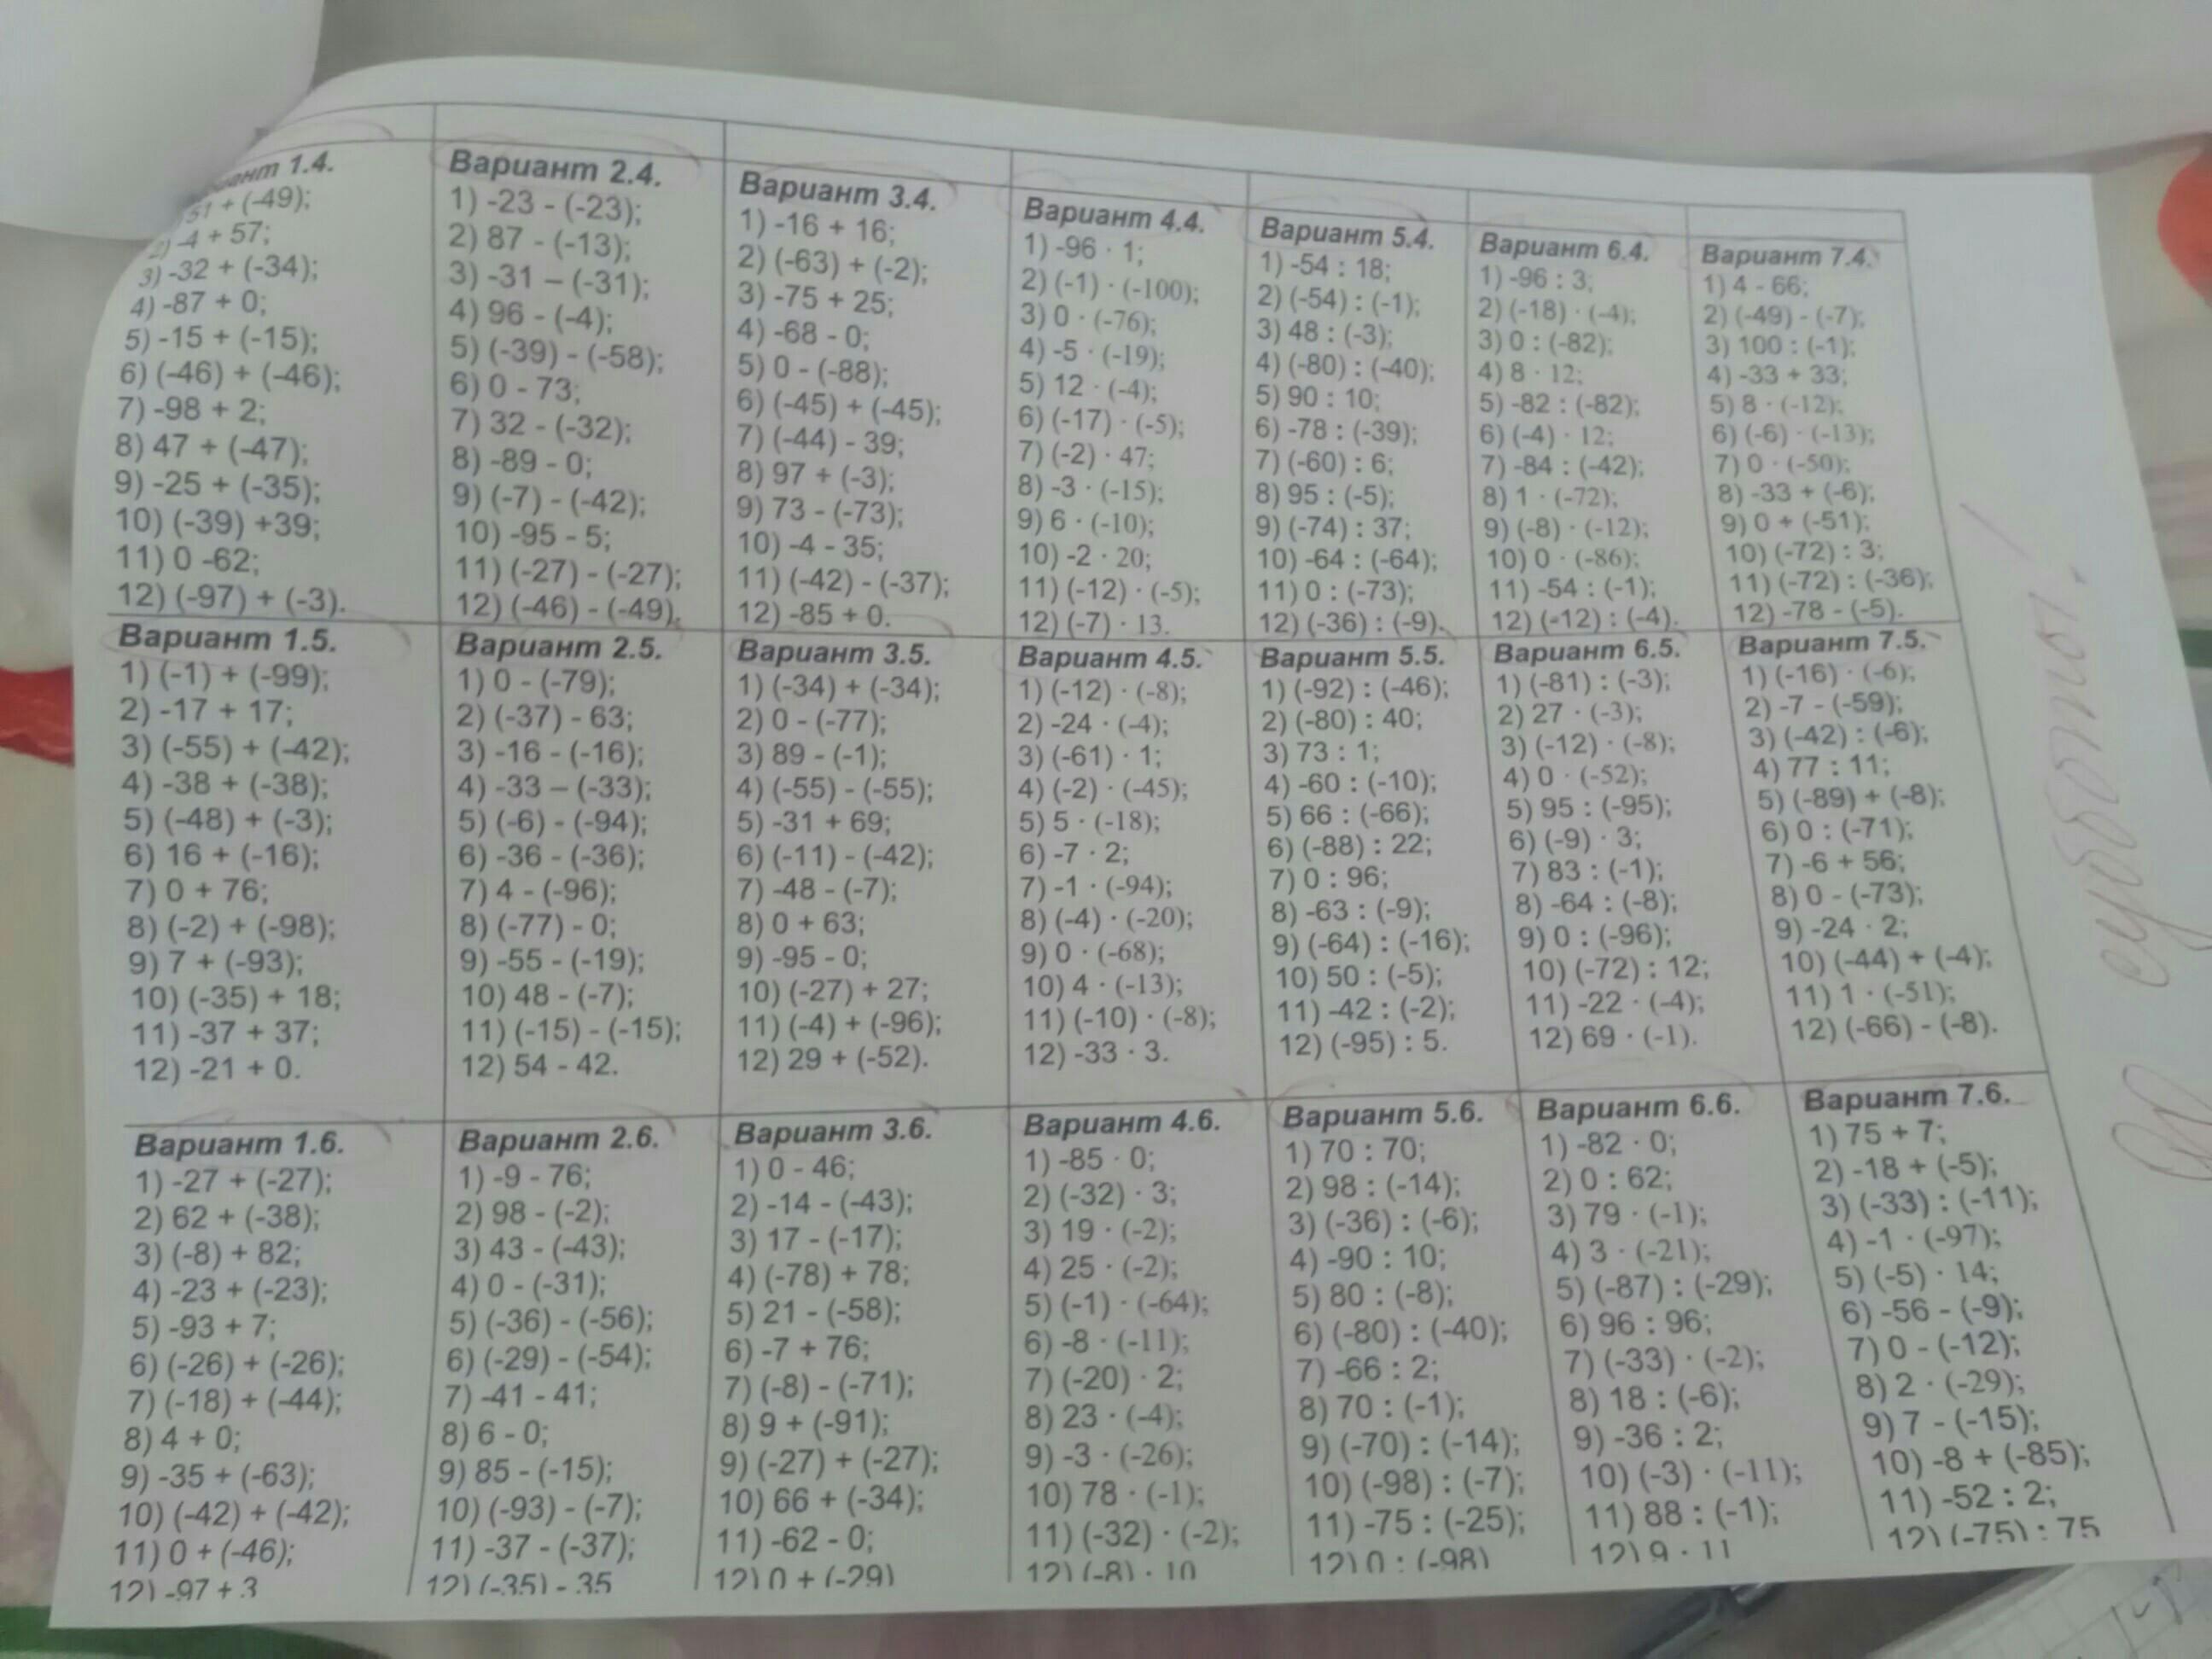 1.4.
51 + (-49);
2) -4 + 57;
3) -32 + (-34);
4) -87 + 0;
5) -15 + (-15);
6) (-46) + (-46);
7) -98 + 2;
8) 47 + (-47);
9) -25 + (-35);
10) (-39) +39;
11) 0 -62;
12) (-97) + (-3).
Вариант 2.4.
1) -23 - (-23);
2) 87 - (-13);
3) -31 – (-31);
4) 96 - (-4);
5) (-39) - (-58);
6) 0 - 73;
7) 32 - (-32);
8) -89 - 0;
9) (-7) - (-42);
10) -95 - 5;
11) (-27) - (-27);
12) (-46) - (-49).
Вариант 3.4.
1) -16 + 16;
2) (-63) + (-2);
3) -75 + 25;
4) -68 - 0;
5) 0 - (-88);
6) (-45) + (-45);
7) (-44) - 39;
8) 97 + (-3);
9) 73 - (-73);
10) -4 - 35;
11) (-42) - (-37);
12) -85 + 0.
Вариант 4.4.
1) -96 · 1;
2) (-1) · (-100);
3) 0 · (-76);
4) -5 · (-19);
5) 12 · (-4);
6) (-17) · (-5);
7) (-2) · 47;
8) -3 · (-15);
9) 6 · (-10);
10) -2 · 20;
11) (-12) · (-5);
12) (-7) · 13.
Вариант 5.4.
1) -54 : 18;
2) (-54) : (-1);
3) 48 : (-3);
4) (-80) : (-40);
5) 90 : 10;
6) -78 : (-39);
7) (-60) : 6;
8) 95 : (-5);
9) (-74) : 37;
10) -64 : (-64);
11) 0 : (-73);
12) (-36) : (-9).
Вариант 6.4.
1) -96 : 3;
2) (-18) · (-4);
3) 0 : (-82);
4) 8 · 12;
5) -82 : (-82);
6) (-4) · 12;
7) -84 : (-42);
8) 1 · (-72);
9) (-8) · (-12);
10) 0 · (-86);
11) -54 : (-1);
12) (-12) : (-4).
Вариант 7.4.
1) 4 - 66;
2) (-49) - (-7);
3) 100 : (-1);
4) -33 + 33;
5) 8 · (-12);
6) (-6) · (-13);
7) 0 · (-50);
8) -33 + (-6);
9) 0 + (-51);
10) (-72) : 3;
11) (-72) : (-36);
12) -78 - (-5).
Вариант 1.5.
1) (-1) + (-99);
2) -17 + 17;
3) (-55) + (-42);
4) -38 + (-38);
5) (-48) + (-3);
6) 16 + (-16);
7) 0 + 76;
8) (-2) + (-98);
9) 7 + (-93);
10) (-35) + 18;
11) -37 + 37;
12) -21 + 0.
Вариант 2.5.
1) 0 - (-79);
2) (-37) - 63;
3) -16 - (-16);
4) -33 – (-33);
5) (-6) - (-94);
6) -36 - (-36);
7) 4 - (-96);
8) (-77) - 0;
9) -55 - (-19);
10) 48 - (-7);
11) (-15) - (-15);
12) 54 - 42.
Вариант 3.5.
1) (-34) + (-34);
2) 0 - (-77);
3) 89 - (-1);
4) (-55) - (-55);
5) -31 + 69;
6) (-11) - (-42);
7) -48 - (-7);
8) 0 + 63;
9) -95 - 0;
10) (-27) + 27;
11) (-4) + (-96);
12) 29 + (-52).
Вариант 4.5.
1) (-12) · (-8);
2) -24 · (-4);
3) (-61) · 1;
4) (-2) · (-45);
5) 5 · (-18);
6) -7 · 2;
7) -1 · (-94);
8) (-4) · (-20);
9) 0 · (-68);
10) 4 · (-13);
11) (-10) · (-8);
12) -33 · 3.
Вариант 5.5.
1) (-92) : (-46);
2) (-80) : 40;
3) 73 : 1;
4) -60 : (-10);
5) 66 : (-66);
6) (-88) : 22;
7) 0 : 96;
8) -63 : (-9);
9) (-64) : (-16);
10) 50 : (-5);
11) -42 : (-2);
12) (-95) : 5.
Вариант 6.5.
1) (-81) : (-3);
2) 27 · (-3);
3) (-12) · (-8);
4) 0 · (-52);
5) 95 : (-95);
6) (-9) · 3;
7) 83 : (-1);
8) -64 : (-8);
9) 0 : (-96);
10) (-72) : 12;
11) -22 · (-4);
12) 69 · (-1).
Вариант 7.5.
1) (-16) · (-6);
2) -7 - (-59);
3) (-42) : (-6);
4) 77 : 11;
5) (-89) + (-8);
6) 0 : (-71);
7) -6 + 56;
8) 0 - (-73);
9) -24 · 2;
10) (-44) + (-4);
11) 1 · (-51);
12) (-66) - (-8).
Вариант 1.6.
1) -27 + (-27);
2) 62 + (-38);
3) (-8) + 82;
4) -23 + (-23);
5) -93 + 7;
6) (-26) + (-26);
7) (-18) + (-44);
8) 4 + 0;
9) -35 + (-63);
10) (-42) + (-42);
11) 0 + (-46);
12) -97 + 3
Вариант 2.6.
1) -9 - 76;
2) 98 - (-2);
3) 43 - (-43);
4) 0 - (-31);
5) (-36) - (-56);
6) (-29) - (-54);
7) -41 - 41;
8) 6 - 0;
9) 85 - (-15);
10) (-93) - (-7);
11) -37 - (-37);
12) (-35) - 35
Вариант 3.6.
1) 0 - 46;
2) -14 - (-43);
3) 17 - (-17);
4) (-78) + 78;
5) 21 - (-58);
6) -7 + 76;
7) (-8) - (-71);
8) 9 + (-91);
9) (-27) + (-27);
10) 66 + (-34);
11) -62 - 0;
12) 0 + (-29)
Вариант 4.6.
1) -85 · 0;
2) (-32) · 3;
3) 19 · (-2);
4) 25 · (-2);
5) (-1) · (-64);
6) -8 · (-11);
7) (-20) · 2;
8) 23 · (-4);
9) -3 · (-26);
10) 78 · (-1);
11) (-32) · (-2);
12) (-8) · 10
Вариант 5.6.
1) 70 : 70;
2) 98 : (-14);
3) (-36) : (-6);
4) -90 : 10;
5) 80 : (-8);
6) (-80) : (-40);
7) -66 : 2;
8) 70 : (-1);
9) (-70) : (-14);
10) (-98) : (-7);
11) -75 : (-25);
12) 0 : (-98)
Вариант 6.6.
1) -82 · 0;
2) 0 : 62;
3) 79 · (-1);
4) 3 · (-21);
5) (-87) : (-29);
6) 96 : 96;
7) (-33) · (-2);
8) 18 : (-6);
9) -36 : 2;
10) (-3) · (-11);
11) 88 : (-1);
12) 9 · 11
Вариант 7.6.
1) 75 + 7;
2) -18 + (-5);
3) (-33) : (-11);
4) -1 · (-97);
5) (-5) · 14;
6) -56 - (-9);
7) 0 - (-12);
8) 2 · (-29);
9) 7 - (-15);
10) -8 + (-85);
11) -52 : 2;
12) (-75) : 75
субботы!